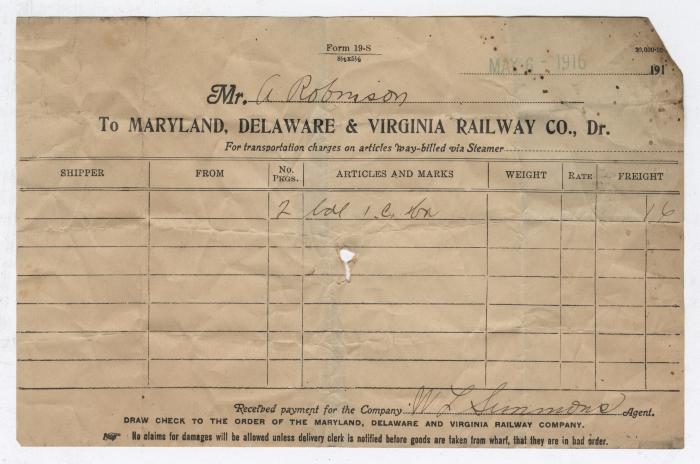 Form 19-S
8½x5½
20,000-10
MAY 6 - 1916 191
Mr. A Robinson
To MARYLAND, DELAWARE & VIRGINIA RAILWAY CO., Dr.
For transportation charges on articles way-billed via Steamer
SHIPPER FROM No. PKGS. ARTICLES AND MARKS WEIGHT RATE FREIGHT
2 bdl 16
Received payment for the Company W L Simmons Agent.
DRAW CHECK TO THE ORDER OF THE MARYLAND, DELAWARE AND VIRGINIA RAILWAY COMPANY.
No claims for damages will be allowed unless delivery clerk is notified before goods are taken from wharf, that they are in bad order.